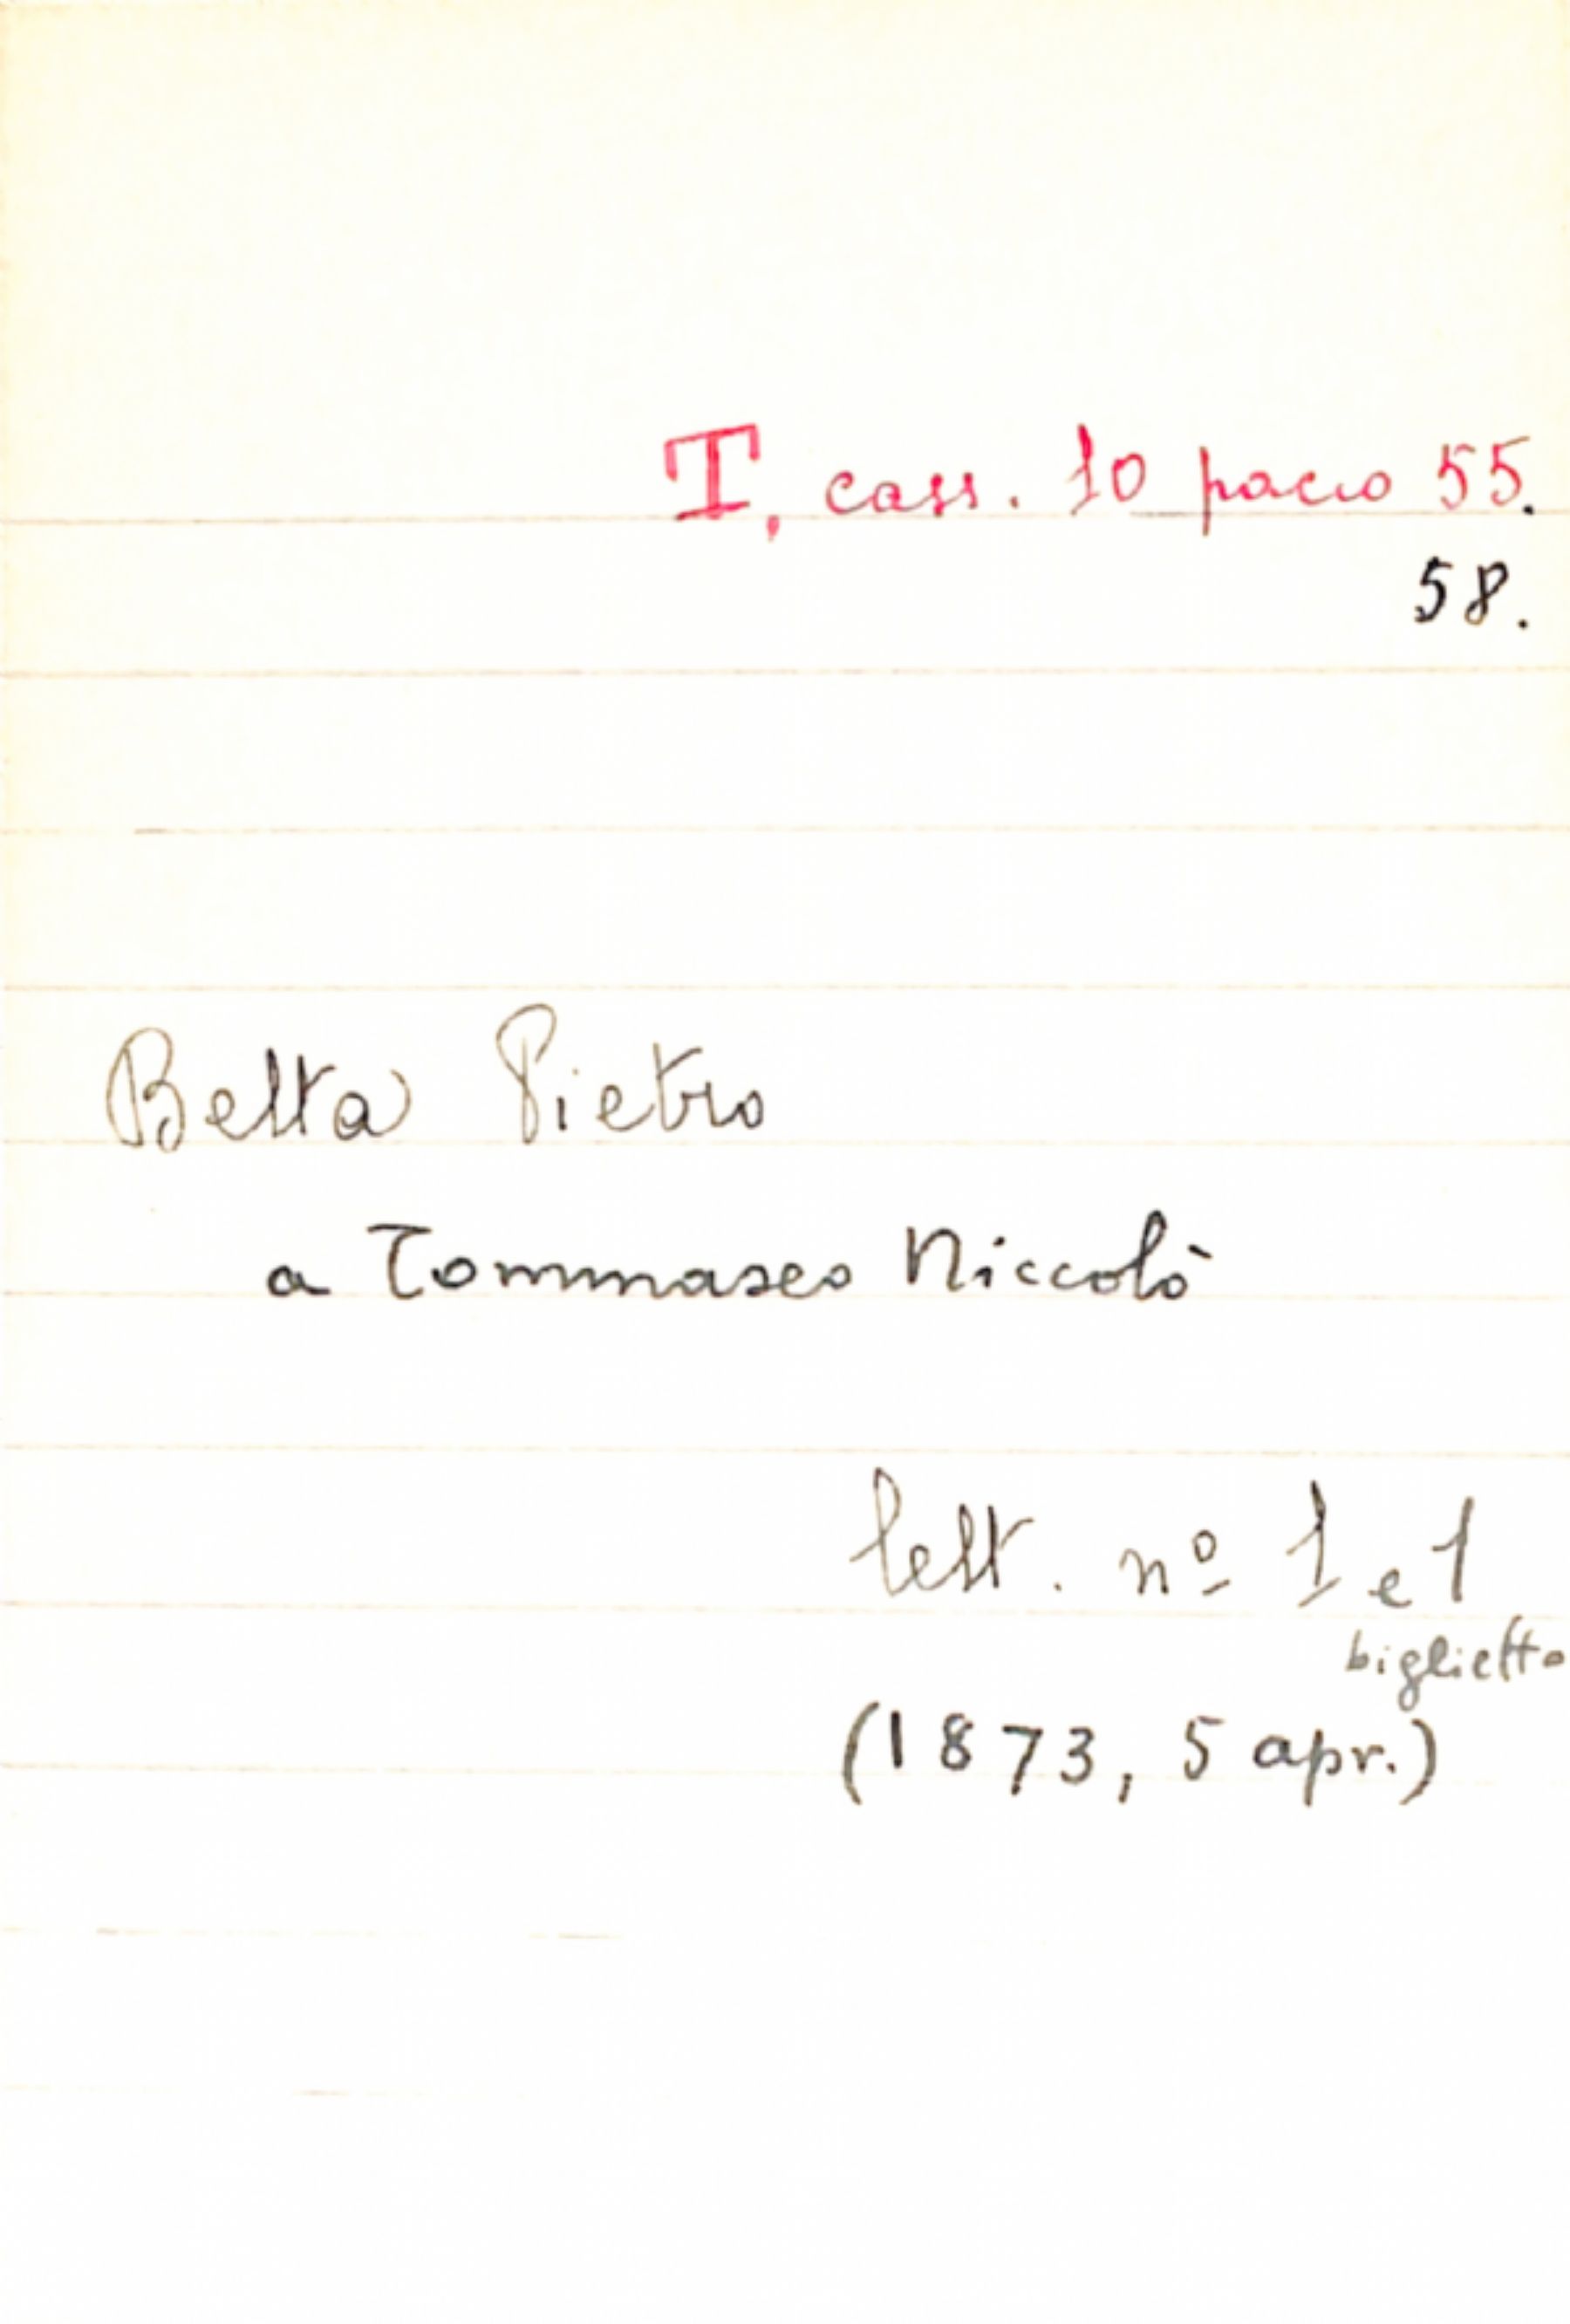 T, cass. 10 pacco 55.
58.
Betta Pietro
a Tommaseo Niccolò
lett. nº 1 e 1
biglietto
(1873, 5 apr.)